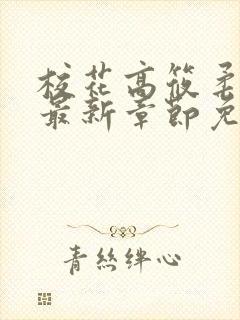 校花高筱柔
最新章节免
青丝绊心